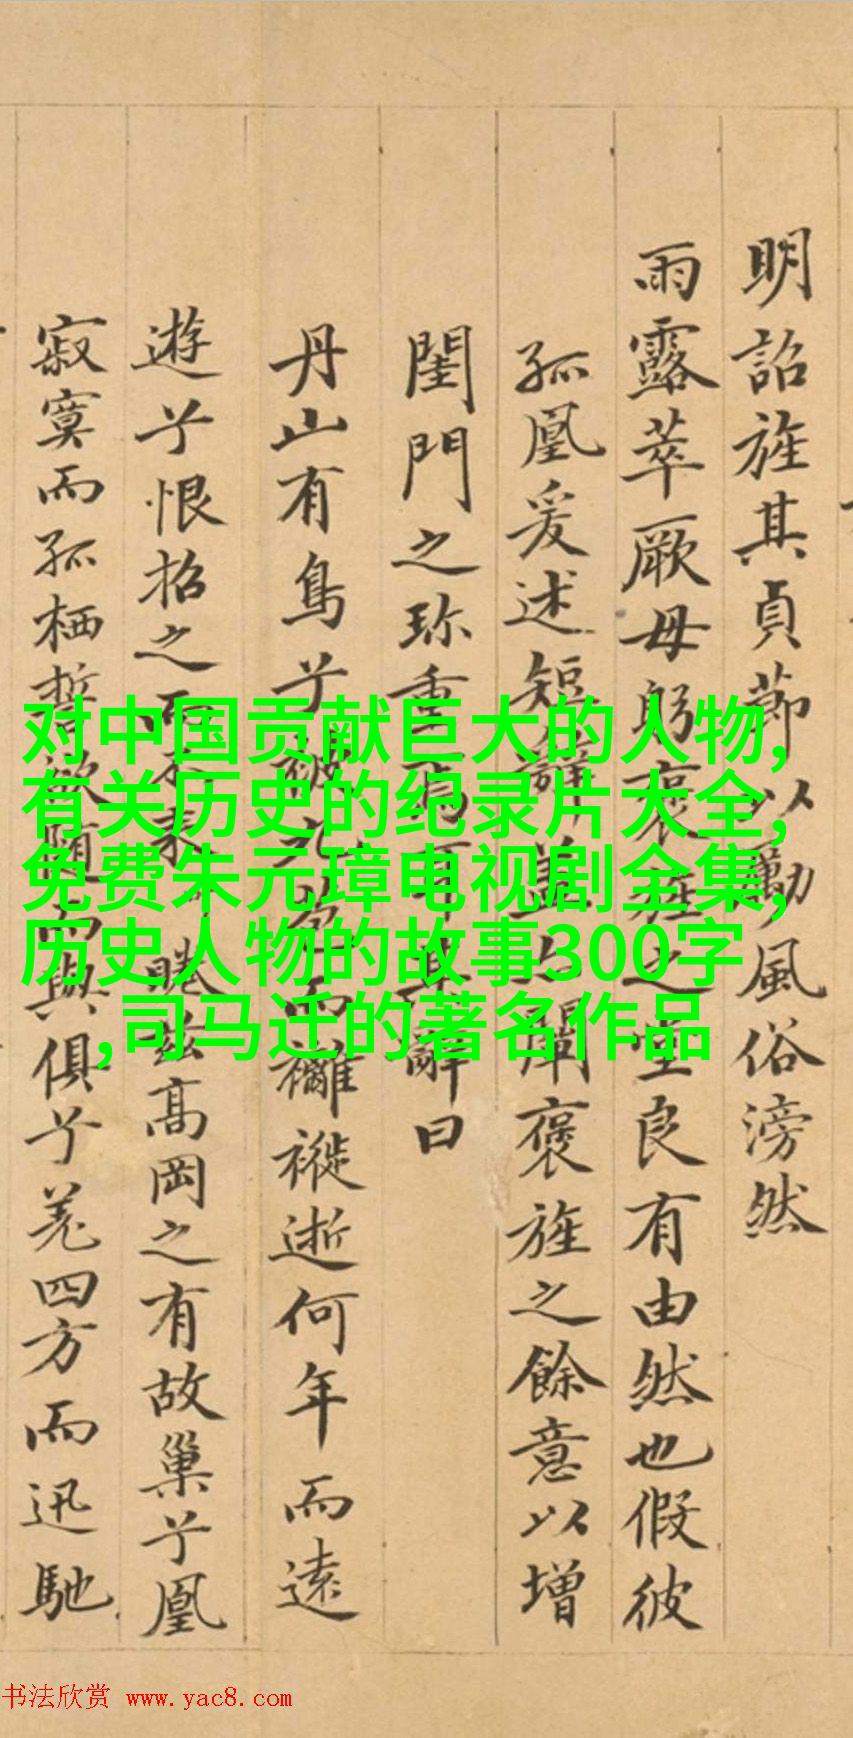 明詔旌其貞節以勵風俗滂然
雨露萃厥母躬褒旌之堂良有由然也假彼
孤凰爰述短辭蓋以闡褒旌之餘意以增
閨門之珎重焉耳其辭曰
丹山有鳥兮被九苞而襹褷逝何年而遠
遊兮恨招之而不来睠兹高岡之有故巢兮凰
寂寞而孤栖誓欲随而與俱兮羗四方而迅馳
对中国贡献巨大的人物,
有关历史的纪录片大全,
免费朱元璋电视剧全集,
历史人物的故事300字
,司马迁的著名作品
书法欣赏 www.yac8.com